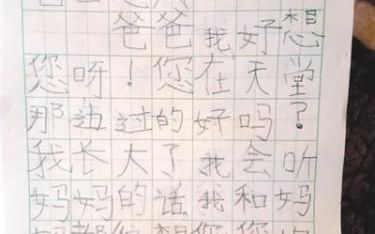 爸爸我好想
您呀！您在天堂
那边过的好吗？
我长大了我会听
妈妈的话我和妈